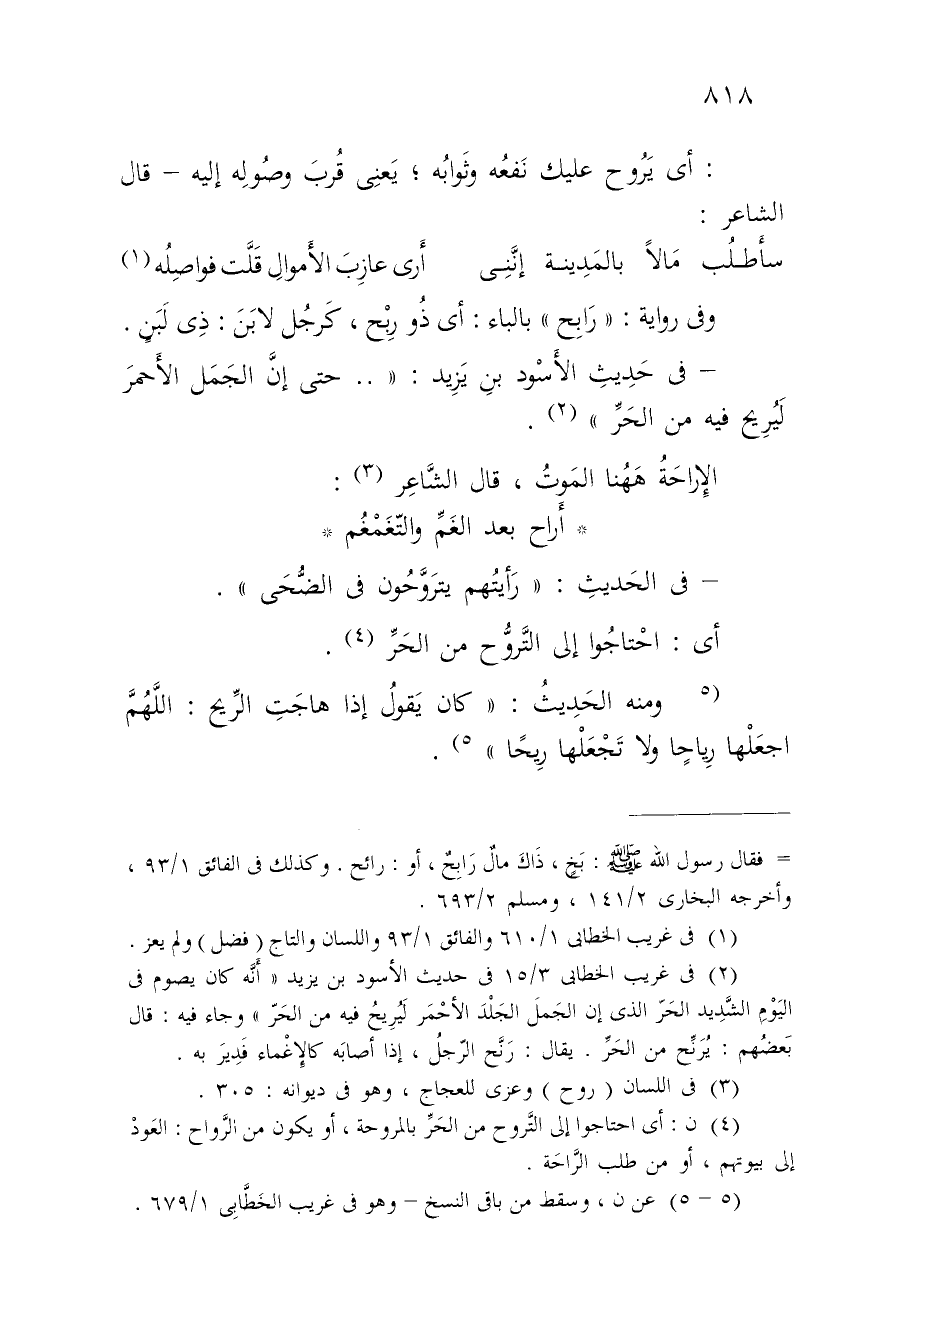 ٨١٨
: أى يَرُوح عليك نَفعُه وثَوابُه ؛ يَعنِى قُربَ وصُولِه إليه – قال
الشاعر :
سأَطلُب مَالاً بالمَدِينة إنَّنِى أَرى عازِبَ الأَموالِ قَلَّت فواصِلُه (١)
وفى رواية : « رَابِح » بالباء : أى ذُو رِبْح ، كَرجُل لابَنَ : ذِى لَبَنٍ .
– فى حَدِيثِ الأَسْود بنِ يَزِيد : « .. حتى إنَّ الجَمَل الأَحمرَ
لَيُرِيح فيه من الحَرِّ » (٢) .
الإِراحَةُ هَهُنا المَوتُ ، قال الشَّاعِر (٣) :
* أَراح بعد الغَمِّ والتّغَمْغُم *
– فى الحَديثِ : « رَأيتُهم يترَوَّحُون فى الضُّحَى » .
أى : احْتاجُوا إلى التَّروُّح من الحَرِّ (٤) .
(٥ ومنه الحَدِيثُ : « كان يَقولُ إذا هاجَتِ الرِّيح : اللَّهُمَّ
اجعَلْها رِياحا ولا تَجْعَلْها رِيحًا » ٥) .
= فقال رسول الله ﷺ : بَخٍ ، ذَاكَ مالٌ رَابِحٌ ، أو : رائح . وكذلك فى الفائق ٩٣/١ ،
وأخرجه البخارى ١٤١/٢ ، ومسلم ٦٩٣/٢ .
(١) فى غريب الخطابى ٦١٠/١ والفائق ٩٣/١ واللسان والتاج ( فضل ) ولم يعز .
(٢) فى غريب الخطابى ١٥/٣ فى حديث الأسود بن يزيد « أنَّه كان يصوم فى
اليَوْمِ الشَّدِيد الحَرّ الذى إن الجَملَ الجَلْدَ الأحْمَر لَيُرِيحُ فيه من الحَرّ » وجاء فيه : قال
بَعضُهم : يُرَنِّح من الحَرِّ . يقال : رَنَّح الرّجلُ ، إذا أصابَه كالإِغْماء فَدِيرَ به .
(٣) فى اللسان ( روح ) وعزى للعجاج ، وهو فى ديوانه : ٣٠٥ .
(٤) ن : أى احتاجوا إلى التَّروح من الحَرِّ بالمروحة ، أو يكون من الرَّواح : العَودْ
إلى بيوتهم ، أو من طلب الرَّاحَة .
(٥ – ٥) عن ن ، وسقط من باقى النسخ – وهو فى غريب الخَطَّابِى ٦٧٩/١ .